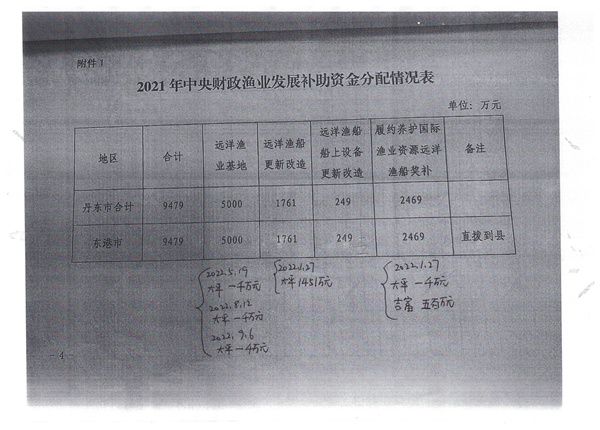 附件1
2021年中央财政渔业发展补助资金分配情况表
单位：万元
地区 合计 远洋渔业基地 远洋渔船更新改造 远洋渔船船上设备更新改造 履约养护国际渔业资源远洋渔船奖补 备注
丹东市合计 9479 5000 1761 249 2469
东港市 9479 5000 1761 249 2469 直拨到县
2022.5.19
大平一4万元
2022.8.12
大平一4万元
2022.9.6
大平一4万元
2022.1.27
大平1451万元
2022.1.27
大平一4万
五百万元
-4-